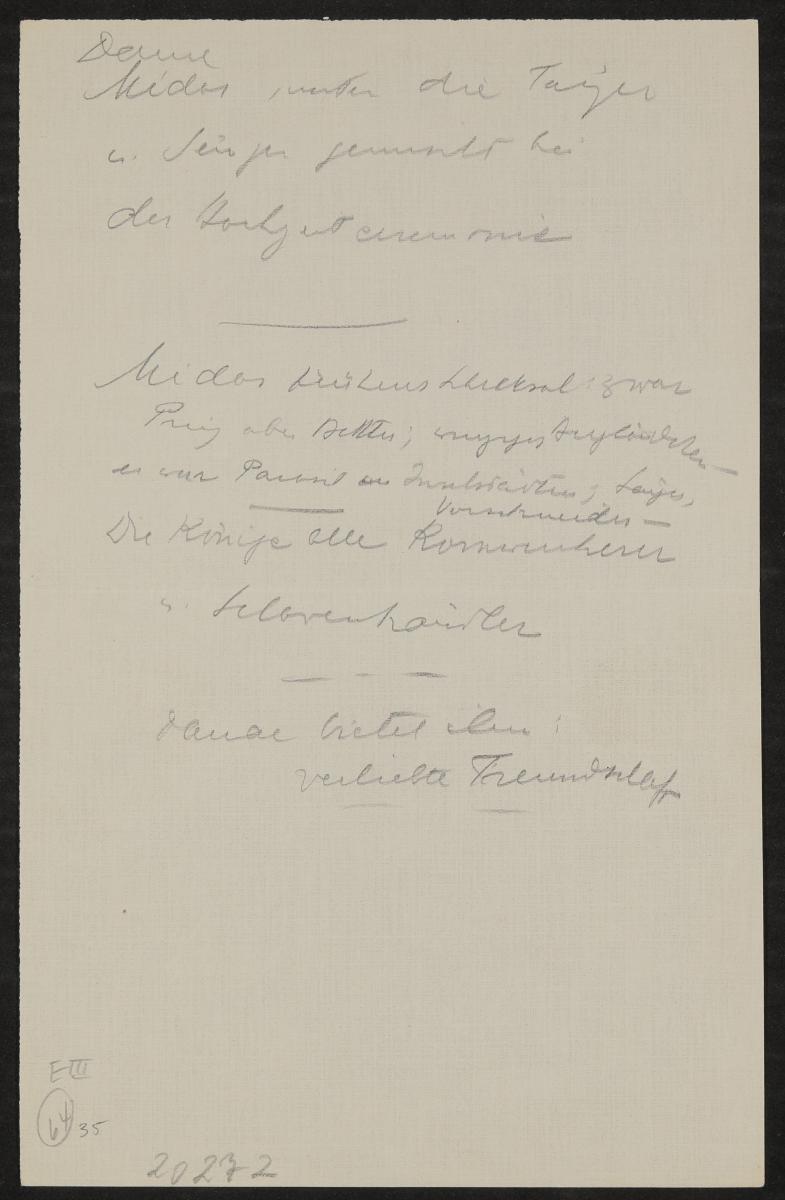 Danae
Midas, unter die Tänzer
u. Sänger gemischt bei
der Hochzeitceremonie
Midas frühens Schicksal: zwar
Prinz aber Bettler;
er war Parasit in Inselstädten; Sänger,
Vorschneider –
Die Könige alle Kornwucherer
u. Sclavenhändler
Danae bietet ihm:
verliebte Freundschaft
E III
64 35
20272